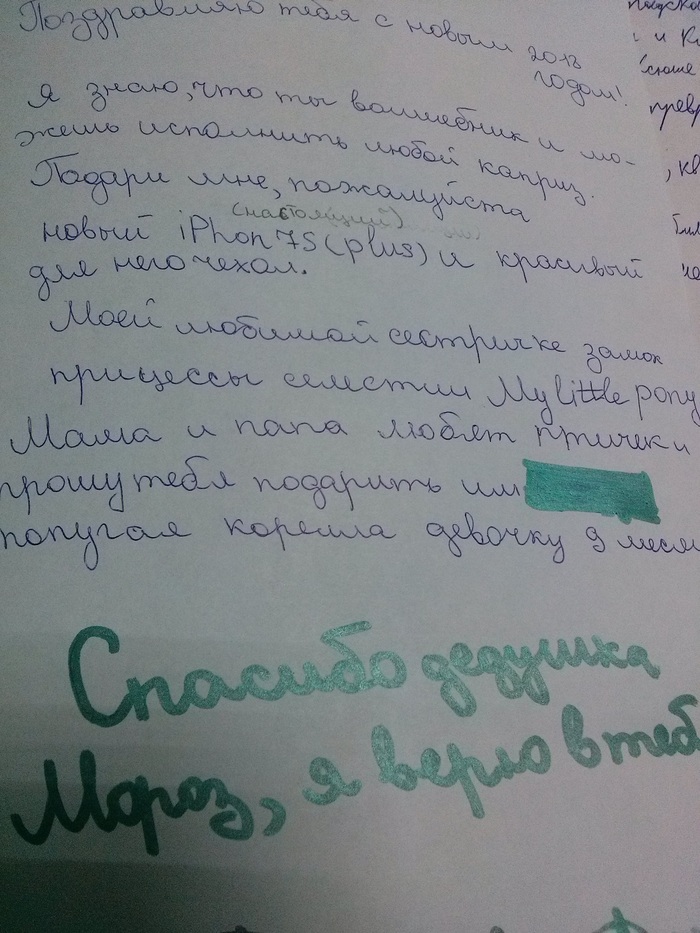 Поздравляю тебя с новым 2018
годом!
Я знаю, что ты волшебник и мо-
жешь исполнить любой каприз.
Подари мне, пожалуйста
(настоящий)
новый iPhon 7S (plus) и красивый
для него чехол.
Моей любимой сестричке замок
принцессы селестии My little pony
Мама и папа любят птичек и
прошу тебя подарить им
попугая корелла девочку 9 меся
Спасибо дедушка
Мороз, я верю в теб